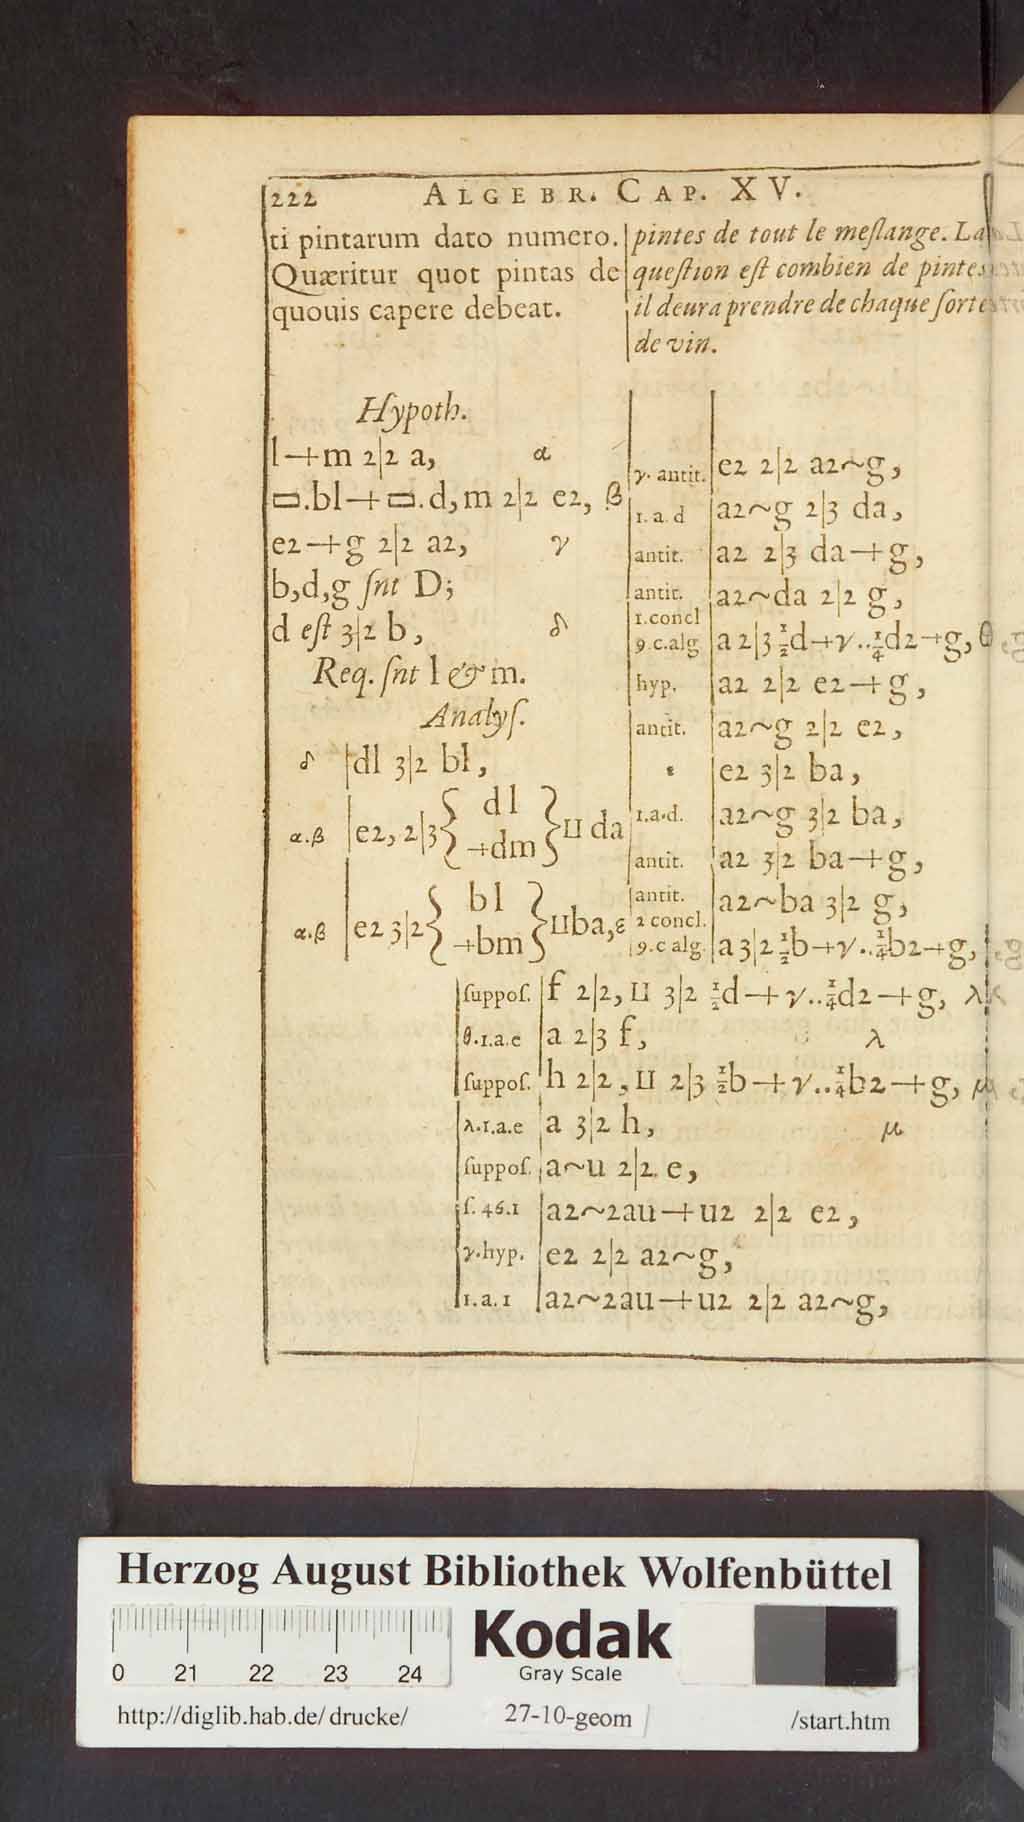 222 ALGEBR. CAP. XV.
ti pintarum dato numero.
Quæritur quot pintas de
quouis capere debeat.
pintes de tout le meſlange. La
queſtion eſt combien de pintes
il deura prendre de chaque ſorte
de vin.
Hypoth.
l+m 2|2 a, α
▭.bl+▭.d,m 2|2 e2, β
e2+g 2|2 a2, γ
b,d,g ſnt D;
d eſt 3|2 b, δ
Req. ſnt l & m.
Analyſ.
δ |dl 3|2 bl,
α.β |e2, 2|3{ dl +dm }⊔ da
α.β |e2 3|2{ bl +bm }⊔ba,ε
γ. antit. |e2 2|2 a2~g,
1. a. d |a2~g 2|3 da,
antit. |a2 2|3 da+g,
antit. |a2~da 2|2 g,
1.concl
9.c.alg |a 2|3 ½d+γ..¼d2+g, θ
hyp. |a2 2|2 e2+g,
antit. |a2~g 2|2 e2,
ε |e2 3|2 ba,
1.a.d. |a2~g 3|2 ba,
antit. |a2 3|2 ba+g,
antit. |a2~ba 3|2 g,
2 concl.
9.c alg. |a 3|2 ½b+γ..¼b2+g,
ſuppoſ. |f 2|2, ⊔ 3|2 ½d+γ..¼d2+g, λ
θ.1.a.e |a 2|3 f, λ
ſuppoſ. |h 2|2, ⊔ 2|3 ½b+γ..¼b2+g, μ
λ.1.a.e |a 3|2 h, μ
ſuppoſ. |a~u 2|2 e,
ſ. 46.1 |a2~2au+u2 2|2 e2,
γ.hyp. |e2 2|2 a2~g,
1.a.1 |a2~2au+u2 2|2 a2~g,
Herzog August Bibliothek Wolfenbüttel
Kodak
Gray Scale
0 21 22 23 24
http://diglib.hab.de/drucke/ 27-10-geom /start.htm